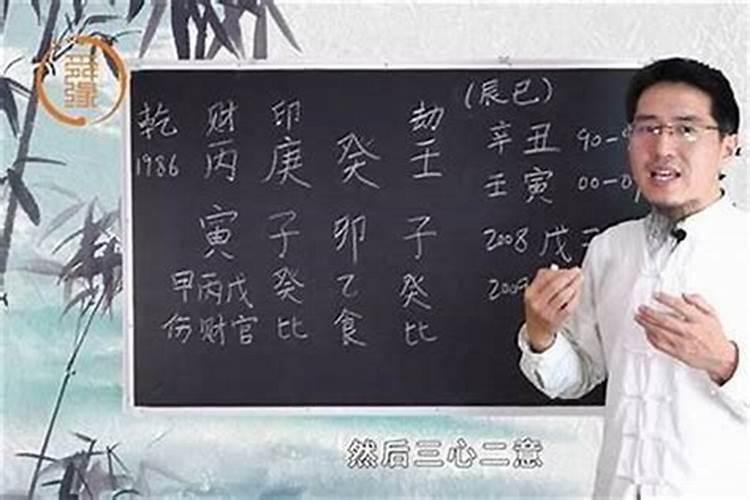 乾 财 印 劫
1986 丙 庚 癸 壬
寅 子 卯 子
甲丙戊 癸 乙 癸
伤财官 比 食 比
(辰巳)
辛丑 90-
壬寅 00-0
2008 戊
2009
然后三心二意